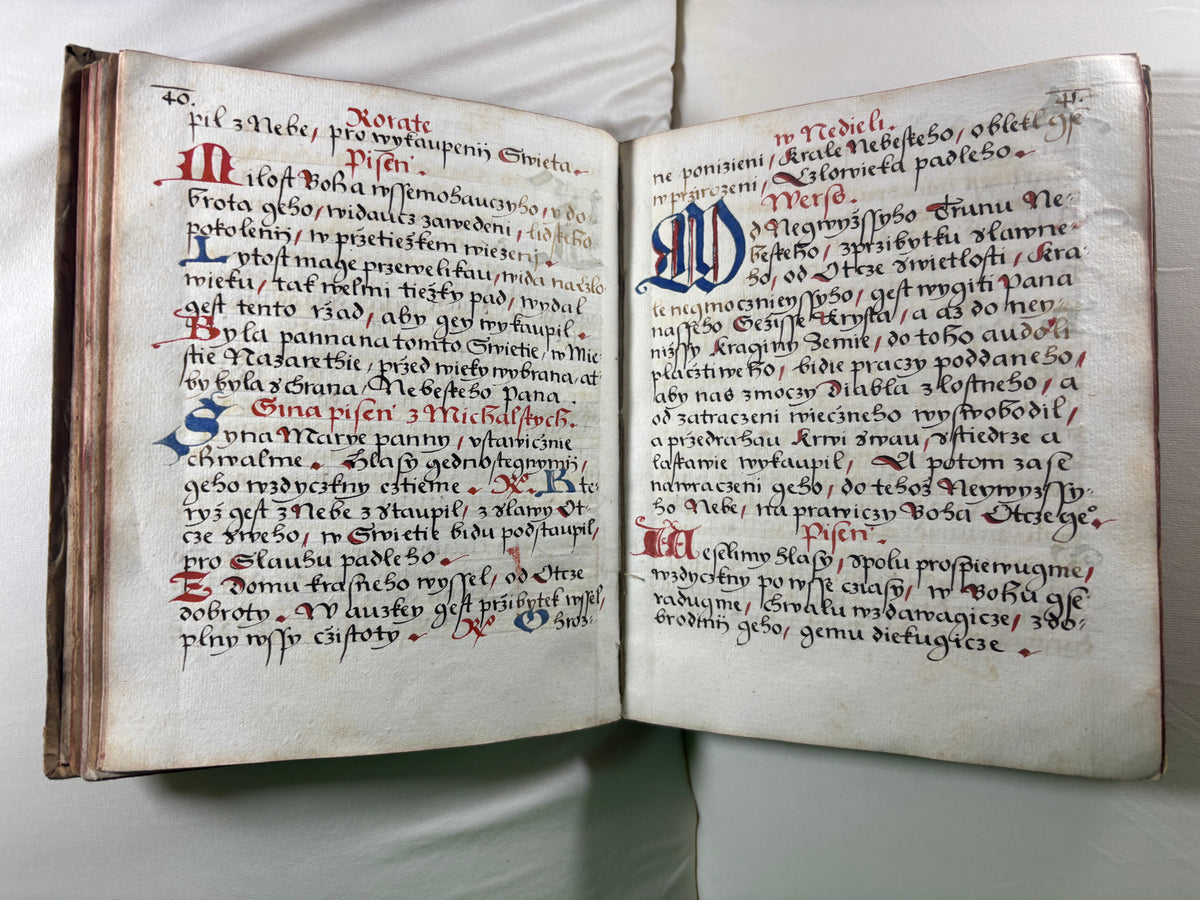 40.
Rorate
pil z Nebe, pro wykaupenij Swieta.
Pisen.
Milost Boha wssemohauczyho, v do-
brota geho, widaucz zawedeni, lidskeho
pokolenij, w przetiežkem wiezenij.
Lytost mage przewelikau, wida naczlo-
wieku, tak welmi tiežky pad, wydal
gest tento ržad, aby gey wykaupil.
Byla panna na tomto Swietie, w Mie-
stie Nazarethie, pržed wieky wybrana, at
by byla schrana, Nebeskeho Pana.
Gina pisen z Michalskych.
Syna Marye panny, vstawicžnie
chwalme. hlasy gednostegnymij,
geho wzdyczkny cztieme. Ro. Kte-
ryž gest z Nebe zstaupil, z slawy Ot-
cze sweho, w Swietie bidu podstaupil,
pro Slauhu padleho.
Z Domu krasneho wyssel, od Otcze
dobroty. W auzkey gest pržibytek wssel,
plny wssy cžistoty. Ro. O hroz-
41.
w Nedieli.
ne ponizieni, Krale Nebeskeho, oblekl gse
w przirozeni, Cžlowieka padleho.
Werso.
Od Neywyžssyho Trunu Ne-
beskeho, z przibytku slawne-
ho, od Otcze swietlosti, Kra-
le neymocznieyssyho, gest wygiti Pana
nasseho Gežisse Krysta, a až do ney-
nižssy Kraginy Zemie, do toho audoli
placztiweho, bidie praczy poddaneho,
aby nas z moczy Diabla zlostneho, a
od zatraczeni wiecžneho wyswobodil,
a przedrahau Krwi swau, sstiedrze a
laskawie wykaupil, A potom zase
nawraczeni geho, do tehož Neywyssy-
ho Nebe, na prawiczy Boha Otcze geo.
Pisen.
Weselimy hlasy, spolu prospiewugme,
wzdyczkny po wsse cžasy, w Bohu gse
radugme, chwalu wzdawagicze, z do-
brodinij geho, gemu diekugicze.